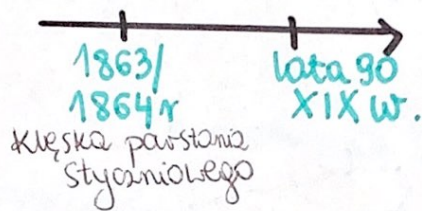 1863/
1864r
Klęska powstania
styczniowego
lata 90
XIX w.